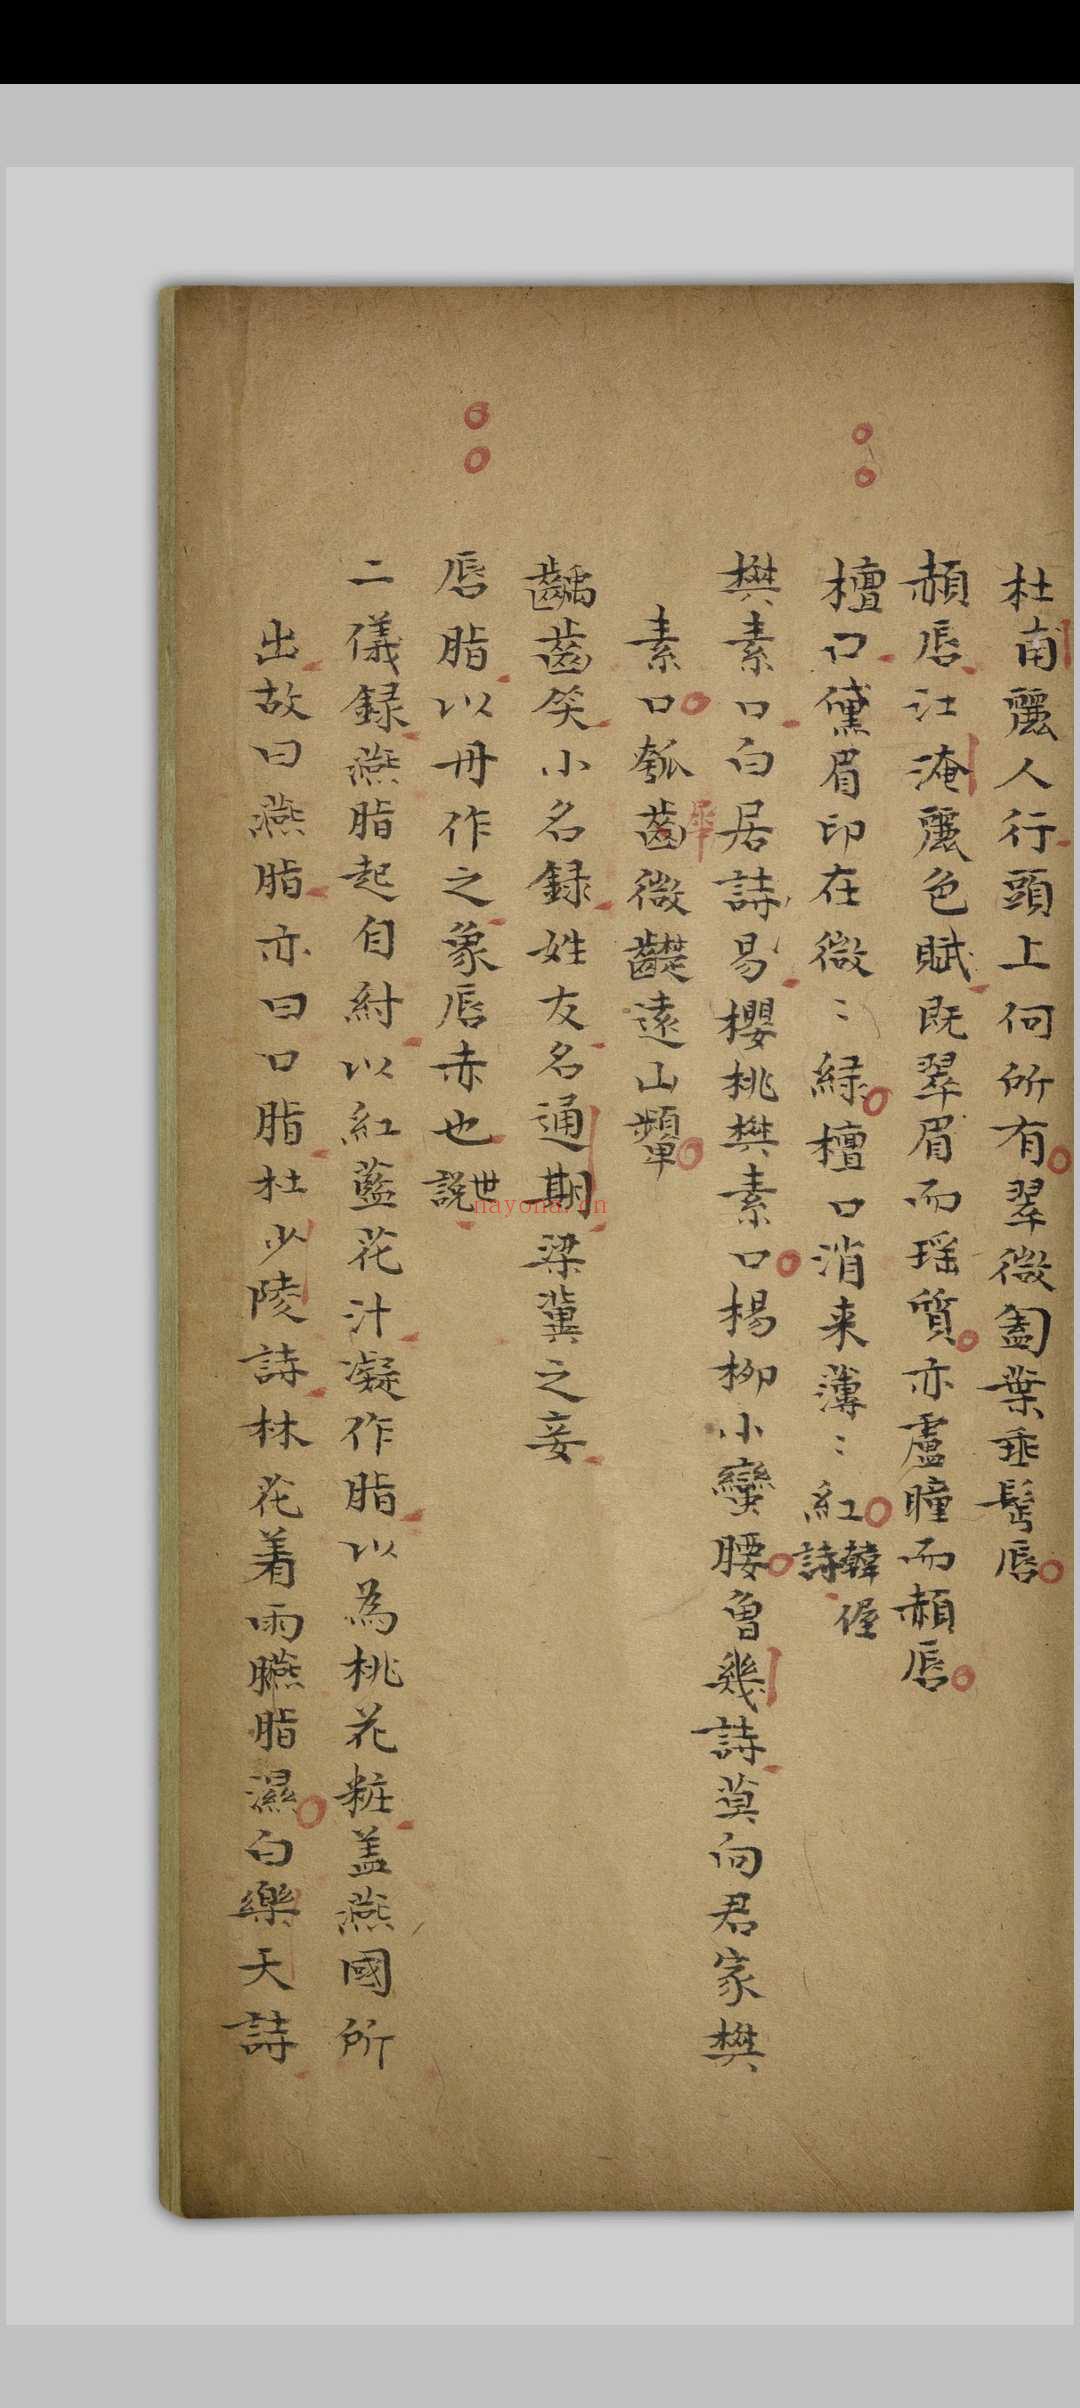 杜甫麗人行頭上何所有翠微㔩葉垂鬢唇
頳唇江淹麗色賦既翠眉而瑶質亦盧瞳而頳唇
檀口黛眉印在微〻緑檀口消来薄〻紅韓偓詩
樊素口白居詩易櫻桃樊素口楊柳小蠻腰曾幾詩莫向君家樊
素口瓠齒微齼遠山顰
犀
齲齒笑小名録姓友名通期梁冀之妾
唇脂以丹作之象唇赤也世説
二儀録燕脂起自紂以紅藍花汁凝作脂以為桃花粧盖燕國所
出故曰燕脂亦曰口脂杜少陵詩林花着雨臙脂濕白樂天詩
nayona.cn